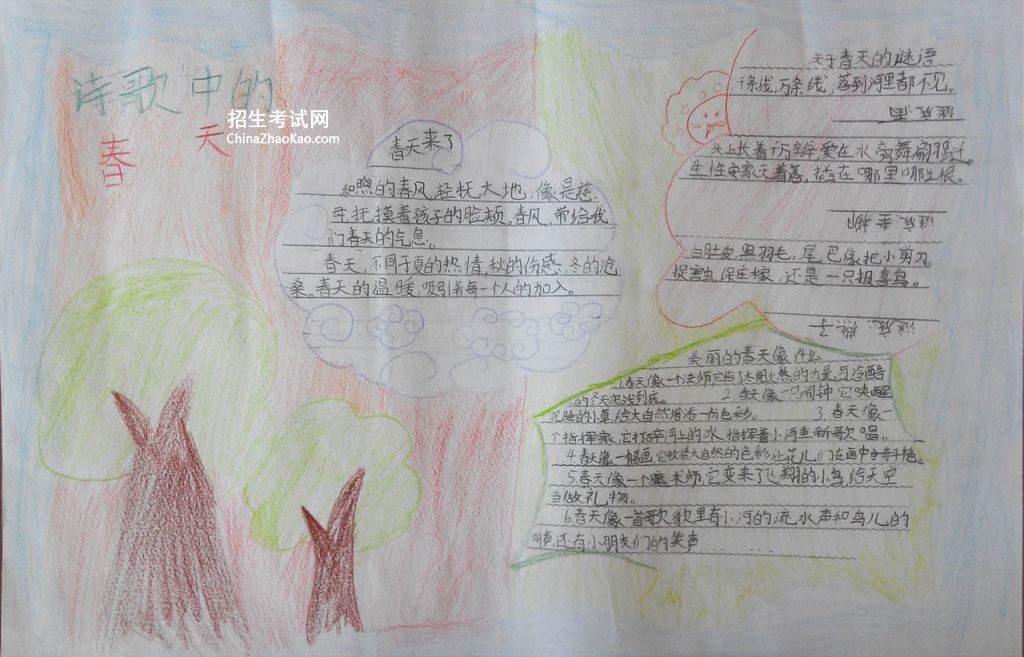 诗歌中的
春 天
招生考试网
ChinaZhaoKao.com
春天来了
和煦的春风,轻抚大地,像是慈
母抚摸着孩子的脸颊。春风,带给我
们春天的气息。
春天,不同于夏的热情,秋的伤感、冬的沧
桑。春天的温暖,吸引着每一个人的加入。
关于春天的谜语
千条线,万条线,落到河里都不见。
头上长着千万辫,爱在水旁舞翩跹。
生性
在哪里哪生根。
白肚皮,黑羽毛,尾巴像把小剪刀
捉害虫,保庄稼,还是一只报喜鸟。
美丽的春天像什么
1.春天像一个法师,它借了太阳火热的力量与冷酷
的冬天
2 春天像一只闹钟,它唤醒
沉睡的小草,给大自然增添一份色彩。 3.春天像一
个指挥家,它打碎河上的冰,指挥着小河重新歌唱。
4 春天像一幅画,它收藏大自然的色彩,让花儿们在画中争奇斗艳。
5 春天像一个魔术师,它变来了飞翔的小鸟,给天空
当做礼物。
6 春天像一首歌,歌里有小河的流水声和鸟儿的
叫声,还有小朋友们的笑声